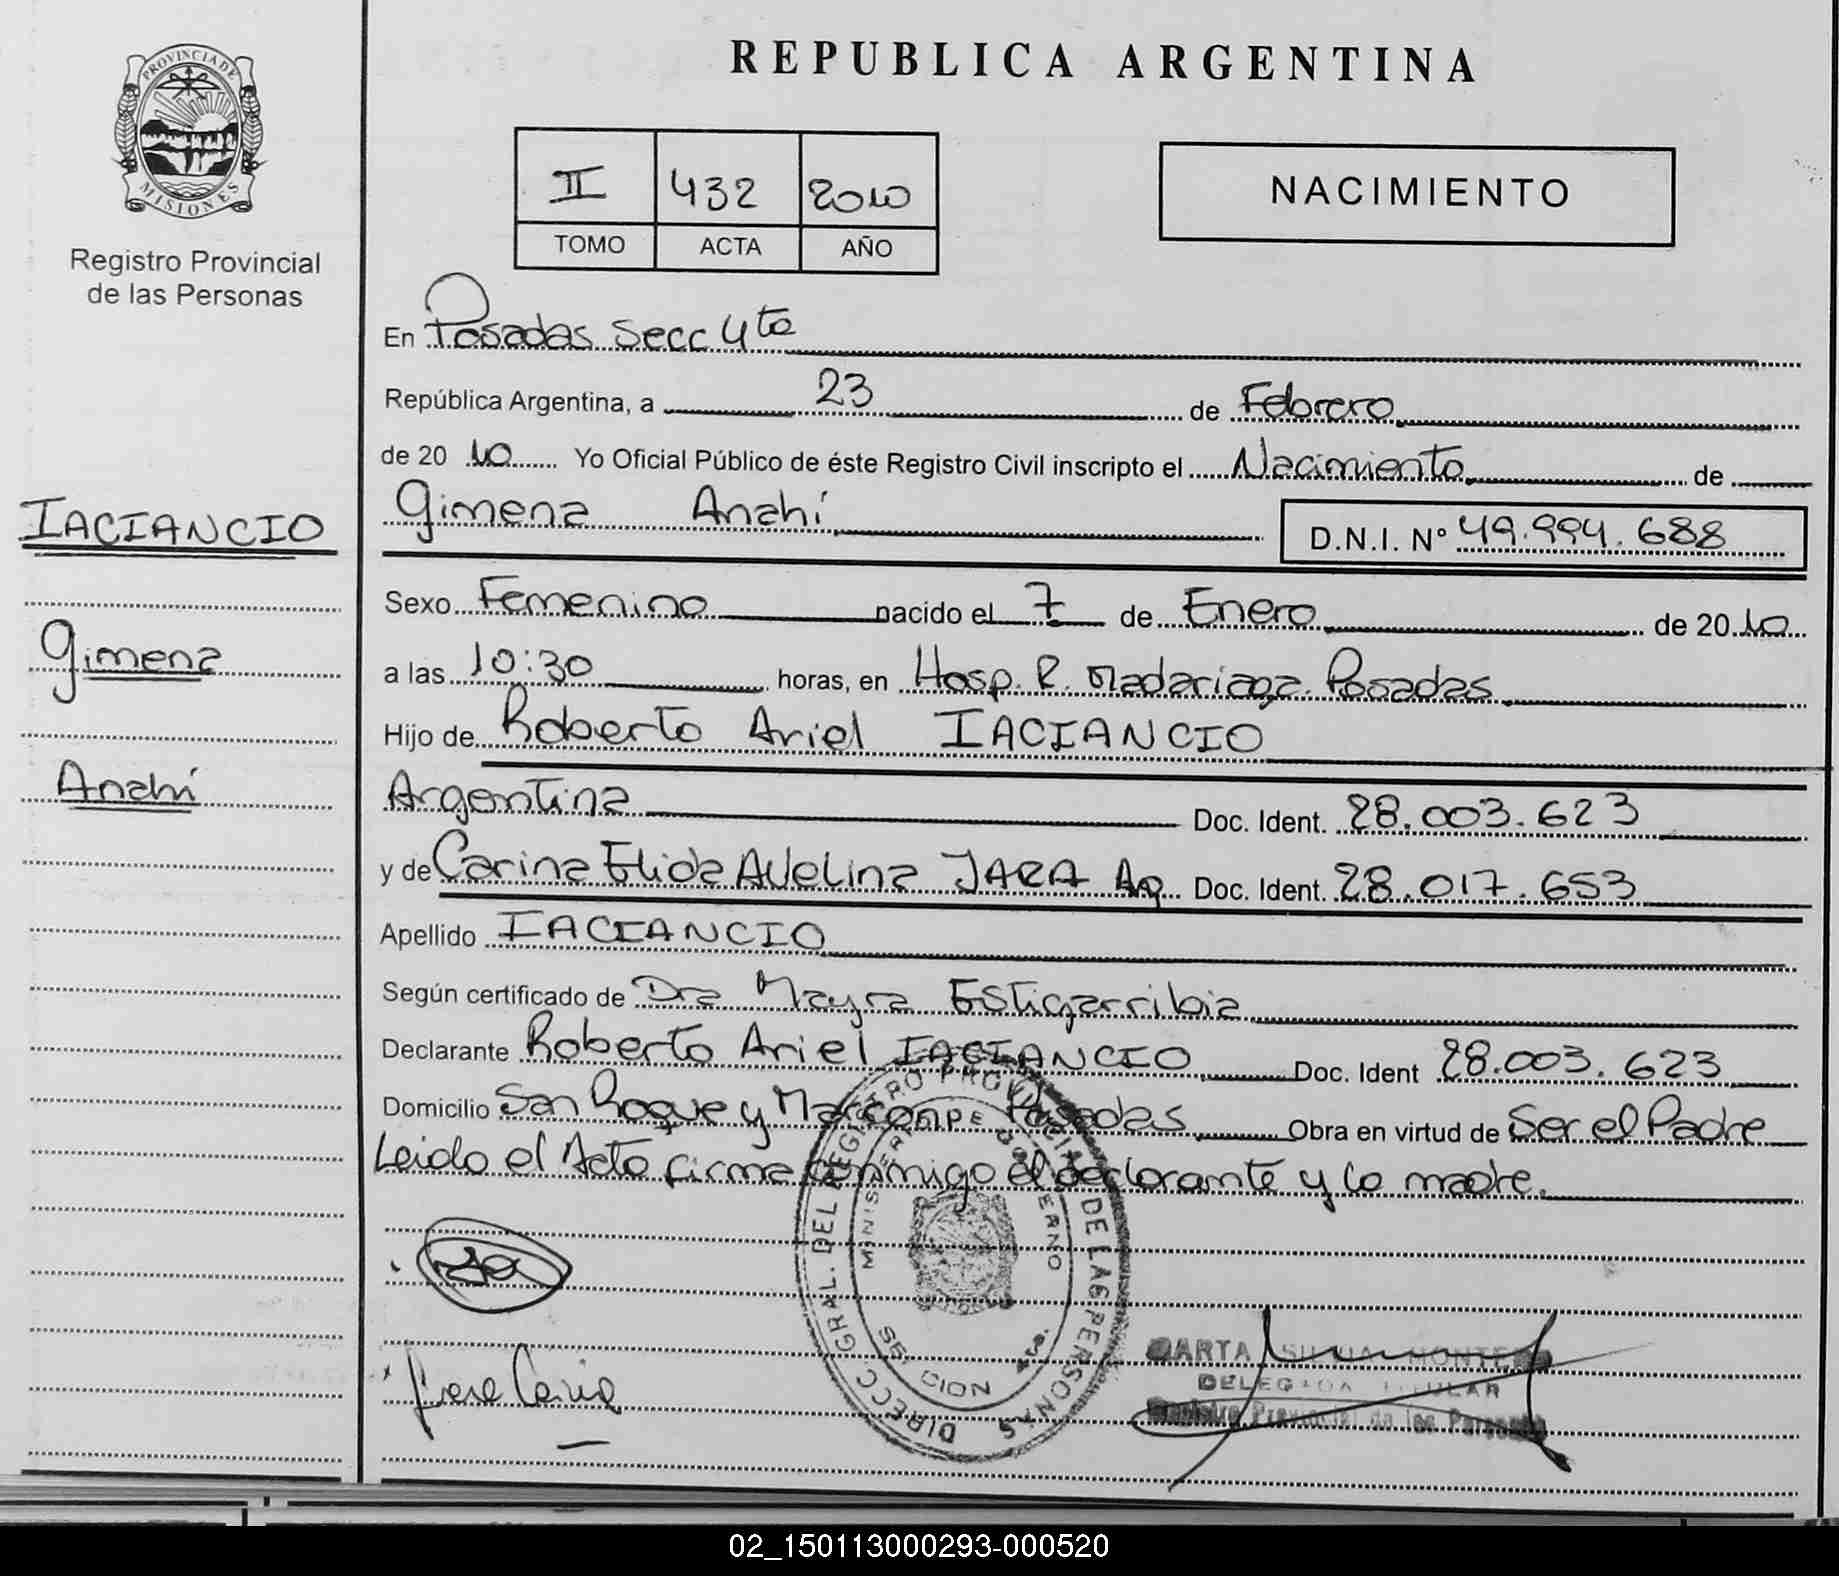 PROVINCIA DE
MISIONES
Registro Provincial
de las Personas
IACIANCIO
Gimena
Anahí
REPUBLICA ARGENTINA
II 432 2010
TOMO ACTA AÑO
NACIMIENTO
En Posadas Secc 4ta
República Argentina, a 23 de Febrero
de 20 10 Yo Oficial Público de éste Registro Civil inscripto el Nacimiento de
Gimena Anahí D.N.I. Nº 49.994.688
Sexo Femenino nacido el 7 de Enero de 20 10
a las 10:30 horas, en Hosp. R. Madariaga. Posadas
Hijo de Roberto Ariel IACIANCIO
Argentina Doc. Ident. 28.003.623
y de Carina Elida Avelina JARA Ag Doc. Ident. 28.017.653
Apellido IACIANCIO
Según certificado de Dra Mayra Estigarribia
Declarante Roberto Ariel IACIANCIO Doc. Ident 28.003.623
Domicilio San Roque y Posadas Obra en virtud de Ser el Padre
Leido el Acta firma conmigo el declarante y la madre.
DIRECC. GRAL. DEL REGISTRO PROVINCIAL DE LAS PERSONAS
MINISTERIO DE GOBIERNO
Jara Carina
MONTE
DELEGADA TITULAR
Registro Provincial de las Personas
02_150113000293-000520